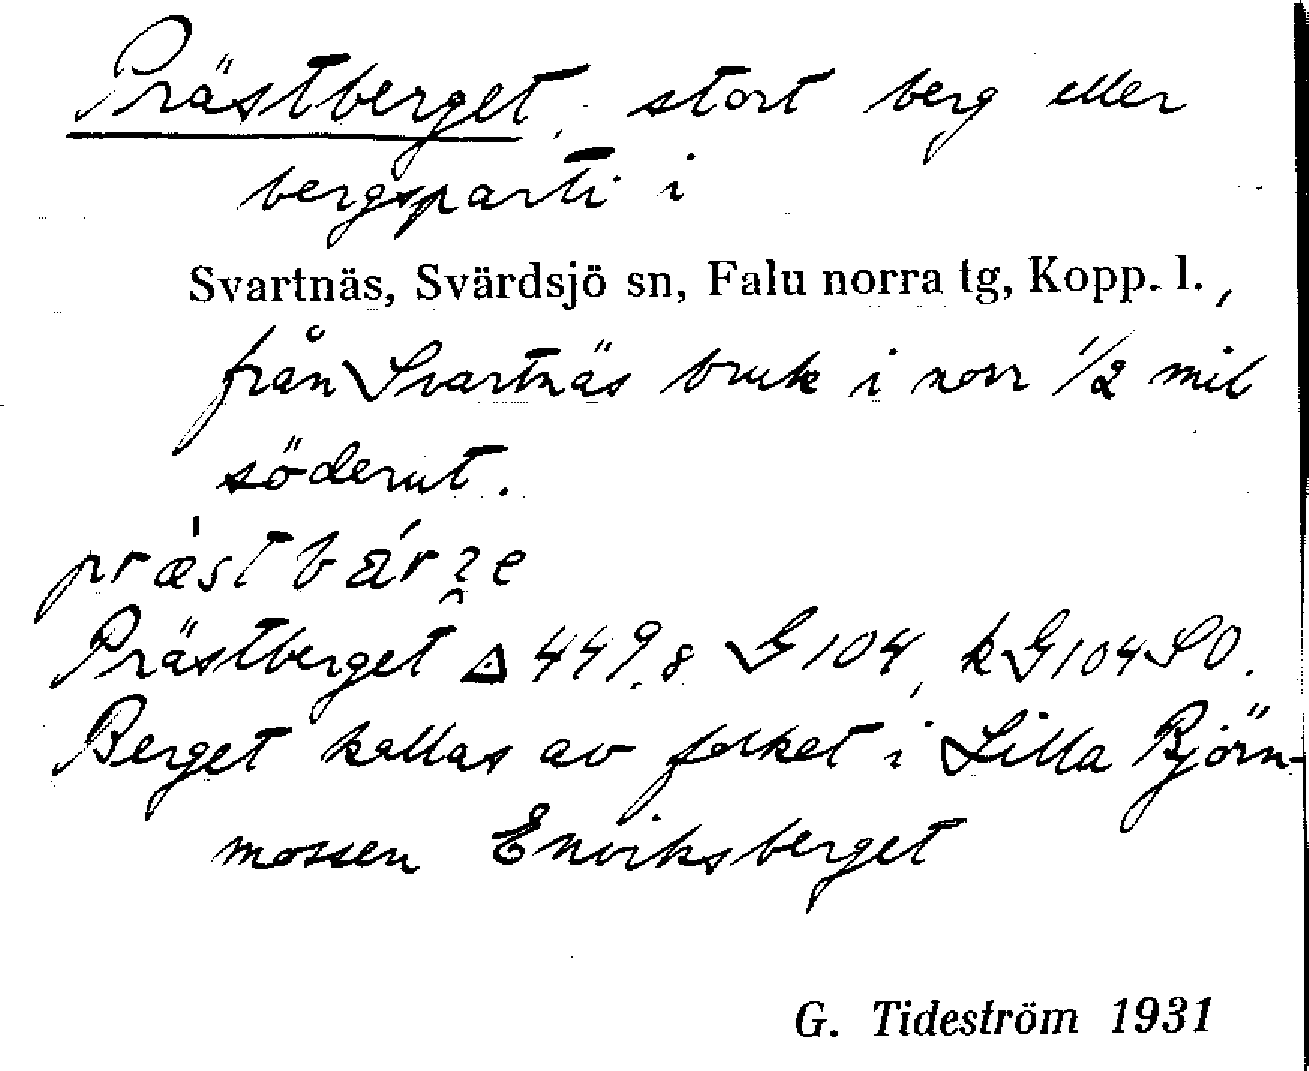 Prästberget, stort berg eller
bergsparti i
Svartnäs, Svärdsjö sn, Falu norra tg, Kopp. l.,
från Svartnäs bruk i norr 1/2 mil
söderut.
Prästberget △ 449.8 G 104, kG104SO.
Berget kallas av folket i Lilla Björn-
mossen Enviksberget
G. Tideström 1931